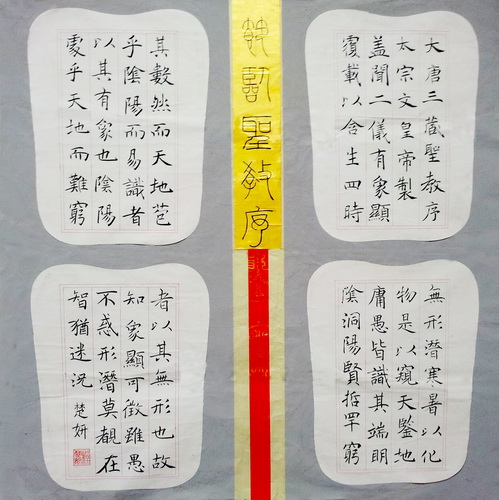 聖教序
大唐三藏聖教序
太宗文皇帝製
盖聞二儀有象顯
覆載以含生四時
無形潛寒暑以化
物是以窺天鑒地
庸愚皆識其端明
陰洞陽賢哲罕窮
其數然而天地苞
乎陰陽而易識者
以其有象也陰陽
處乎天地而難窮
者以其無形也故
知象顯可徵雖愚
不惑形潛莫覩在
智猶迷況 楚妍